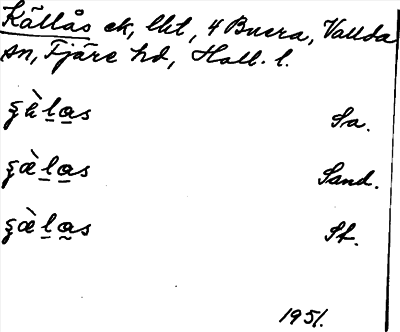 Källås ek, lht, 4 Buera, Vallda
sn, Fjäre hd, Hall. l.
ʂæ̀l̲a̲s Sa.
ʂæ̀l̲a̲s Sand.
ʂæ̀l̲a̰s St.
1951.